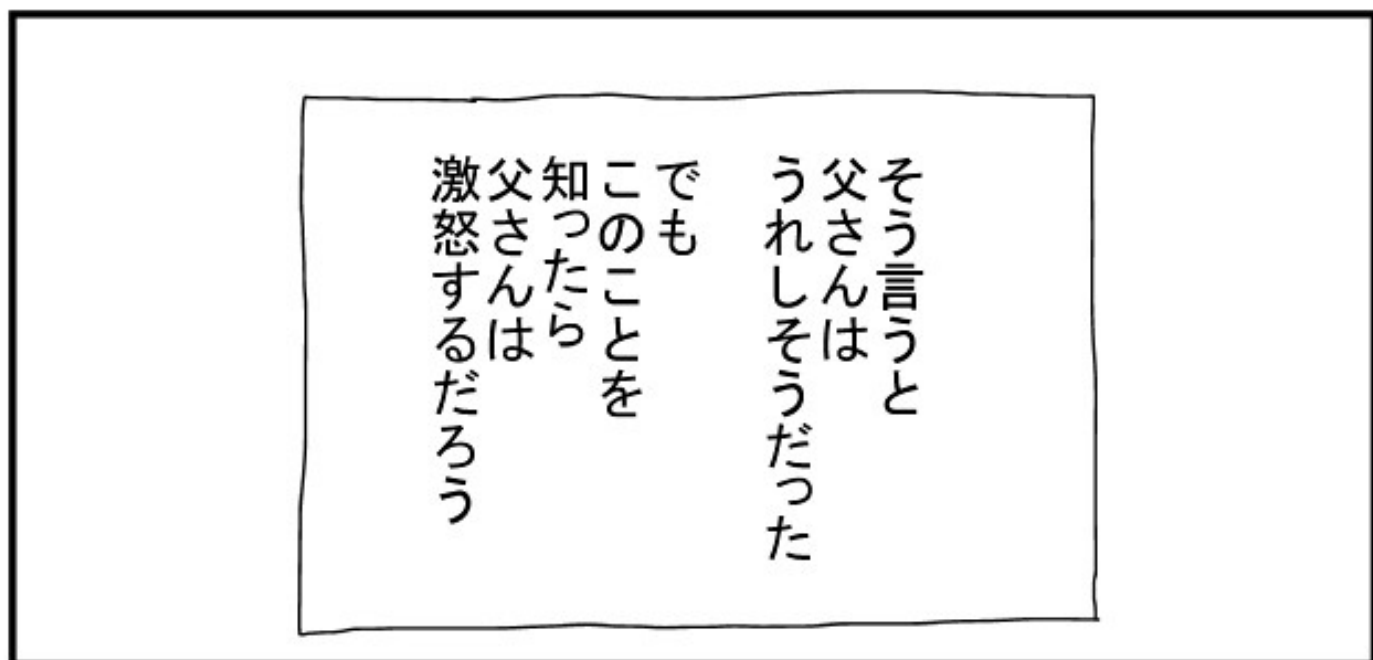 そう言うと
父さんは
うれしそうだった
でも
このことを
知ったら
父さんは
激怒するだろう